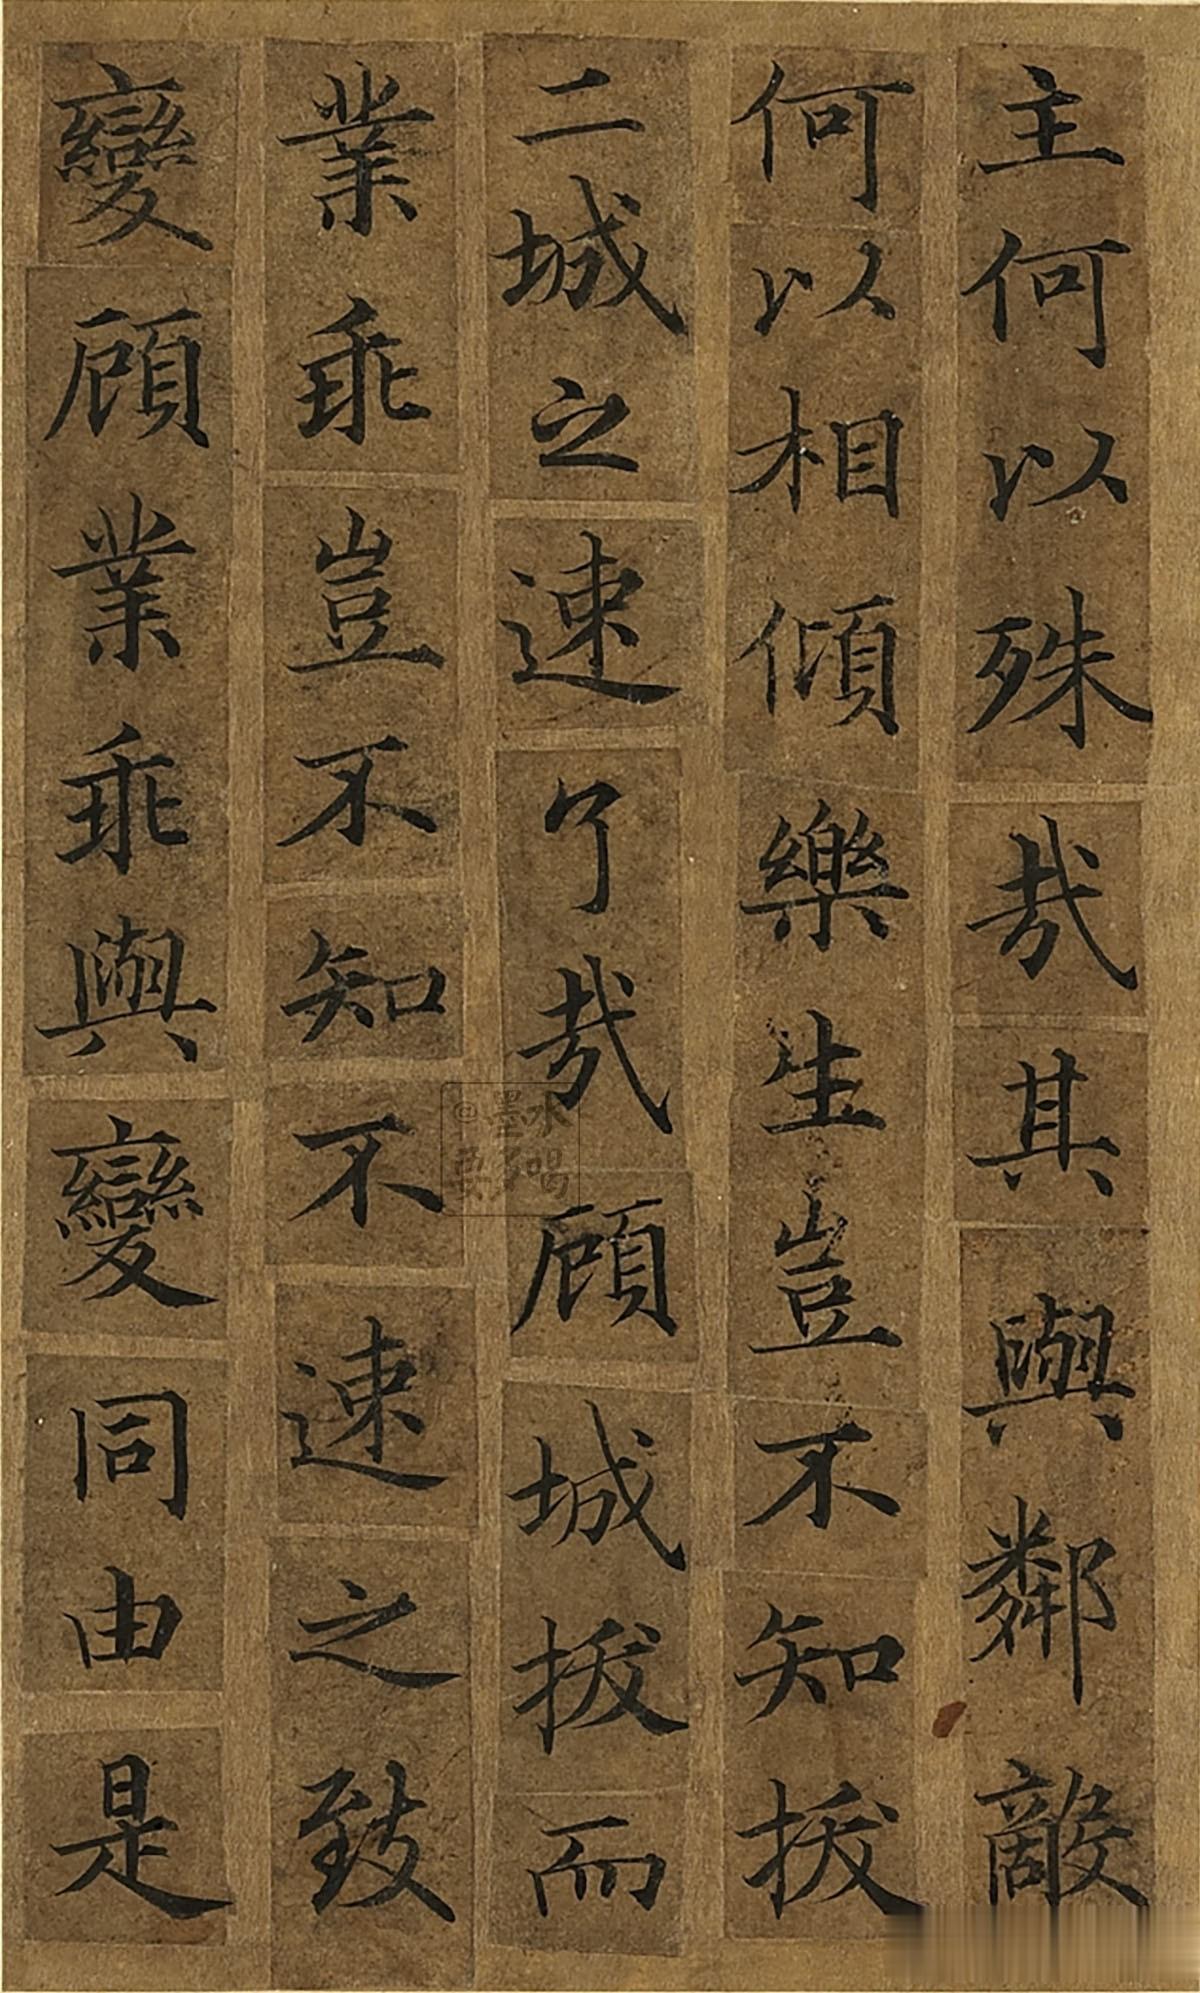 主何以殊哉其與鄰敵
何以相傾樂生豈不知拔
二城之速了哉顧城拔而
業乖豈不知不速之致
變顧業乖與變同由是
@墨水
要多喝